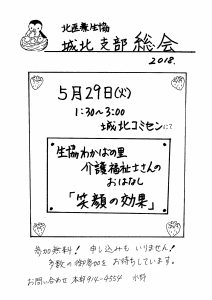 北医療生協
城北支部 総会
2018.
5月29日(火)
1:30～3:00
城北コミセンにて
生協わかばの里
介護福祉士さんの
おはなし
「笑顔の効果」
参加無料！ 申し込みもいりません！
多数の御参加をお待ちしています。
お問い合わせ 本部914-4554